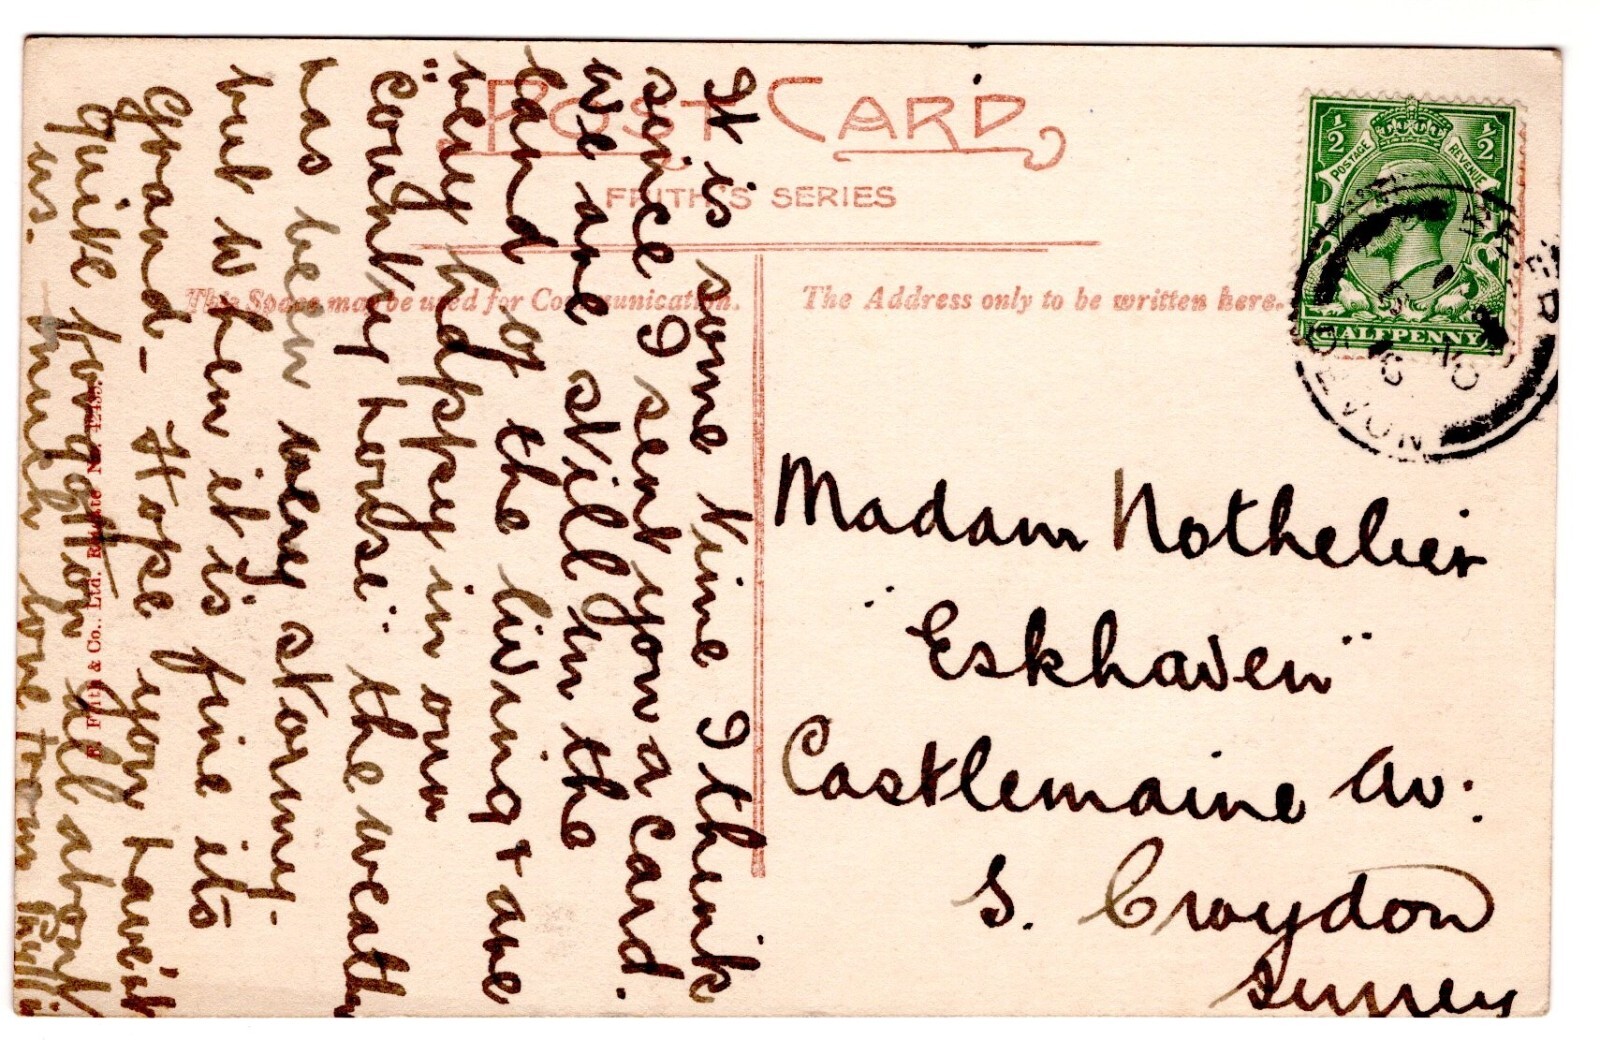 POST CARD
FRITH'S SERIES
This Space may be used for Communication.
The Address only to be written here.
½ ½
POSTAGE REVENUE
HALFPENNY
DEVON
It is some time I think
since I sent you a card.
We are still in the
land of the living & are
very happy in our
"country house" the weather
has been very stormy.
but when it is fine its
Grand - Hope you haven't
quite forgotton all about
us. Much love from
F. Frith & Co., Ltd. Reigate No. 42435.
Madam Nothelier
"Eskhaven"
Castlemaine Av:
S. Croydon
Surrey